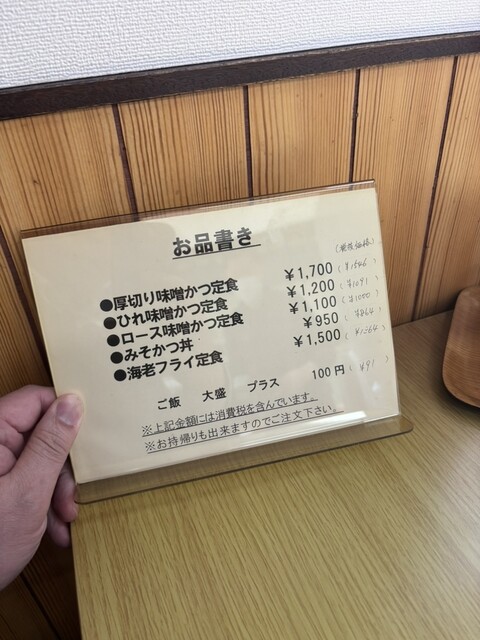 お品書き
(税抜価格)
●厚切り味噌かつ定食 ¥1,700 (¥1546)
●ひれ味噌かつ定食 ¥1,200 (¥1091)
●ロース味噌かつ定食 ¥1,100 (¥1000)
●みそかつ丼 ¥950 (¥864)
●海老フライ定食 ¥1,500 (¥1364)
ご飯 大盛 プラス 100円 (¥91)
※上記金額には消費税を含んでいます。
※お持帰りも出来ますのでご注文下さい。